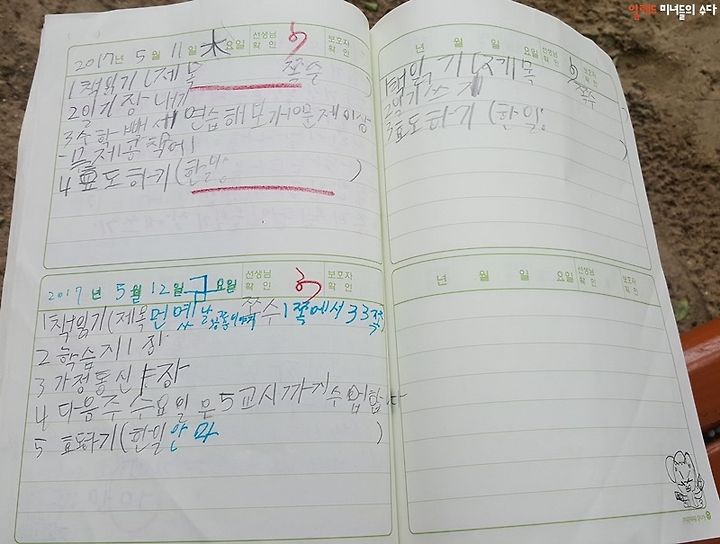 일랜드 미녀들의 수다
2017년 5월 11일 木요일 선생님 확인 보호자 확인
1 책읽기 (제목 쪽수 )
2 일기장내기
3 수학 뺄셈 연습해보기 10문제이상
- 문제공책에
4 효도하기 (한일: )
2017년 5월 12일 금요일 선생님 확인 보호자 확인
1 책읽기 (제목 먼옛날 공룡이야기 쪽수 1쪽에서 33쪽
2 학습지 1장
3 가정통신 1장
4 다음주 수요일은 5교시까지 수업합니다
5 효도하기 (한일 안마 )
년 월 일 요일 선생님 확인 보호자 확인
책읽기 (제목 쪽수 )
2 일기쓰기
3 효도하기 (한일: )
년 월 일 요일 선생님 확인 보호자 확인